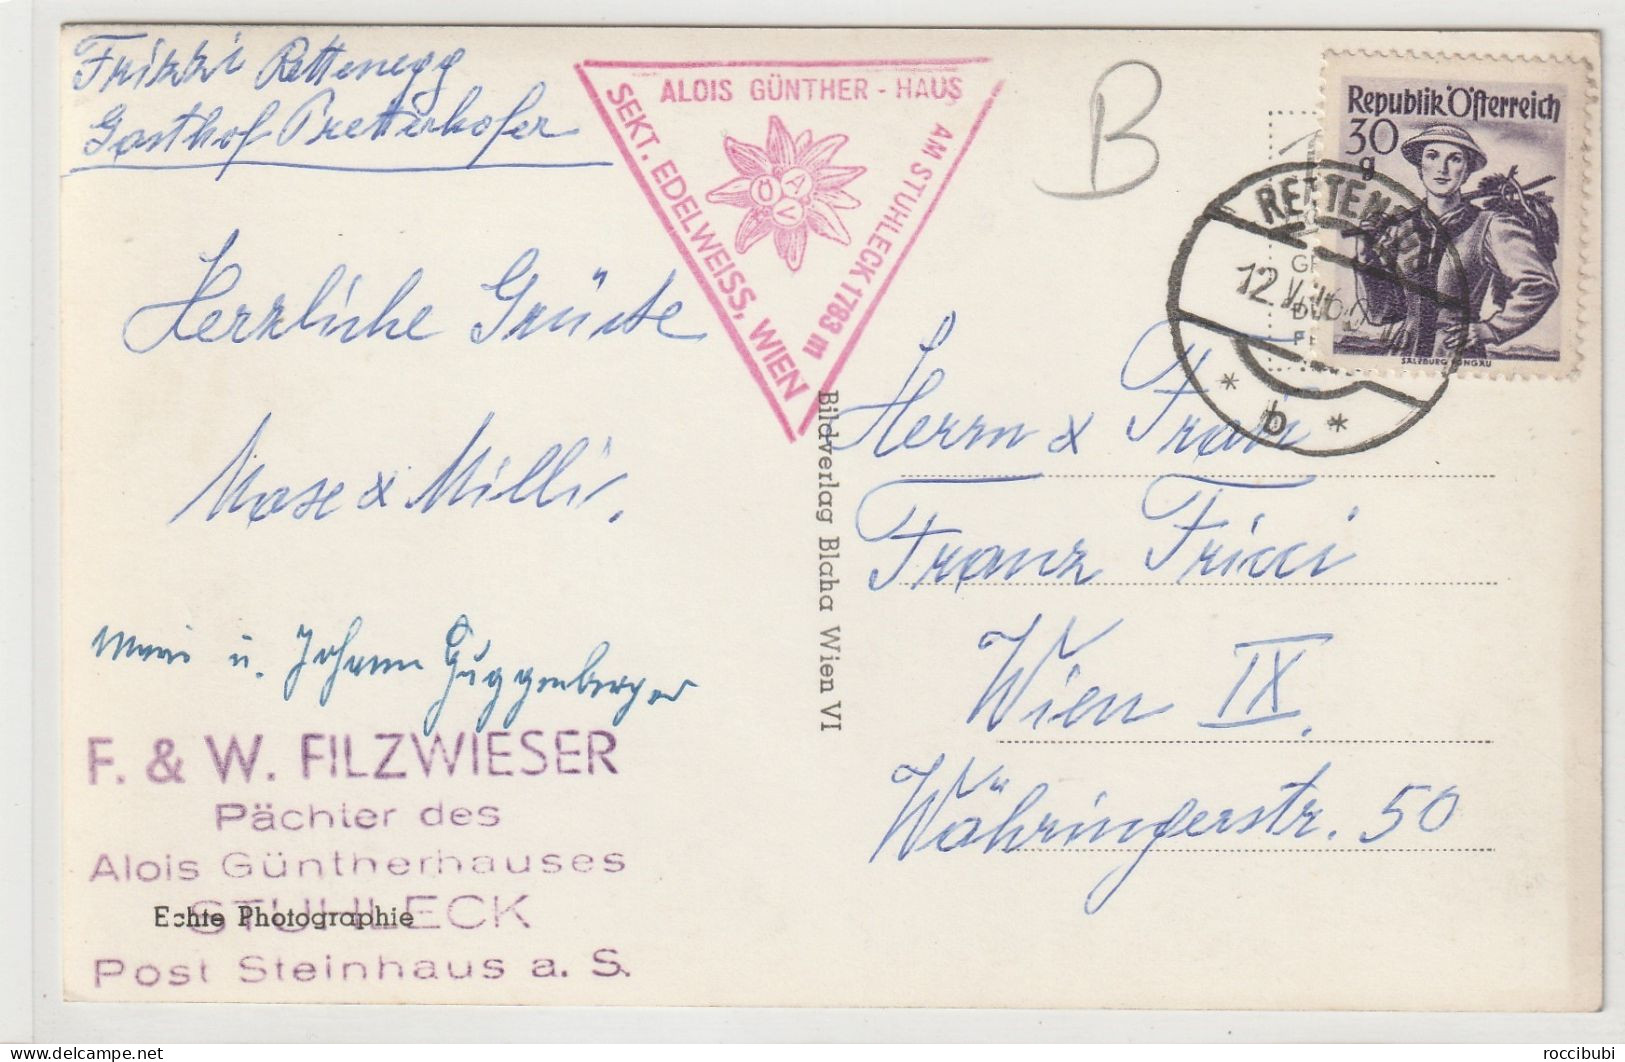 Rettenegg
Gasthof Pretterhofer
Herzliche Grüsse
& Milli.
u. Johann Guggenberger
F. & W. FILZWIESER
Pächter des
Alois Güntherhauses
STUHLECK
Echte Photographie
Post Steinhaus a. S.
ALOIS GÜNTHER - HAUS
AM STUHLECK 1783 m
SEKT. EDELWEISS, WIEN
ÖAV
Bildverlag Blaha Wien VI
B
Republik Österreich
30
g
SALZBURG PONGAU
RETTENEGG
12.
b
Herrn & Frau
Franz Fricci
Wien IX.
Währingerstr. 50
delcampe.net
roccibubi